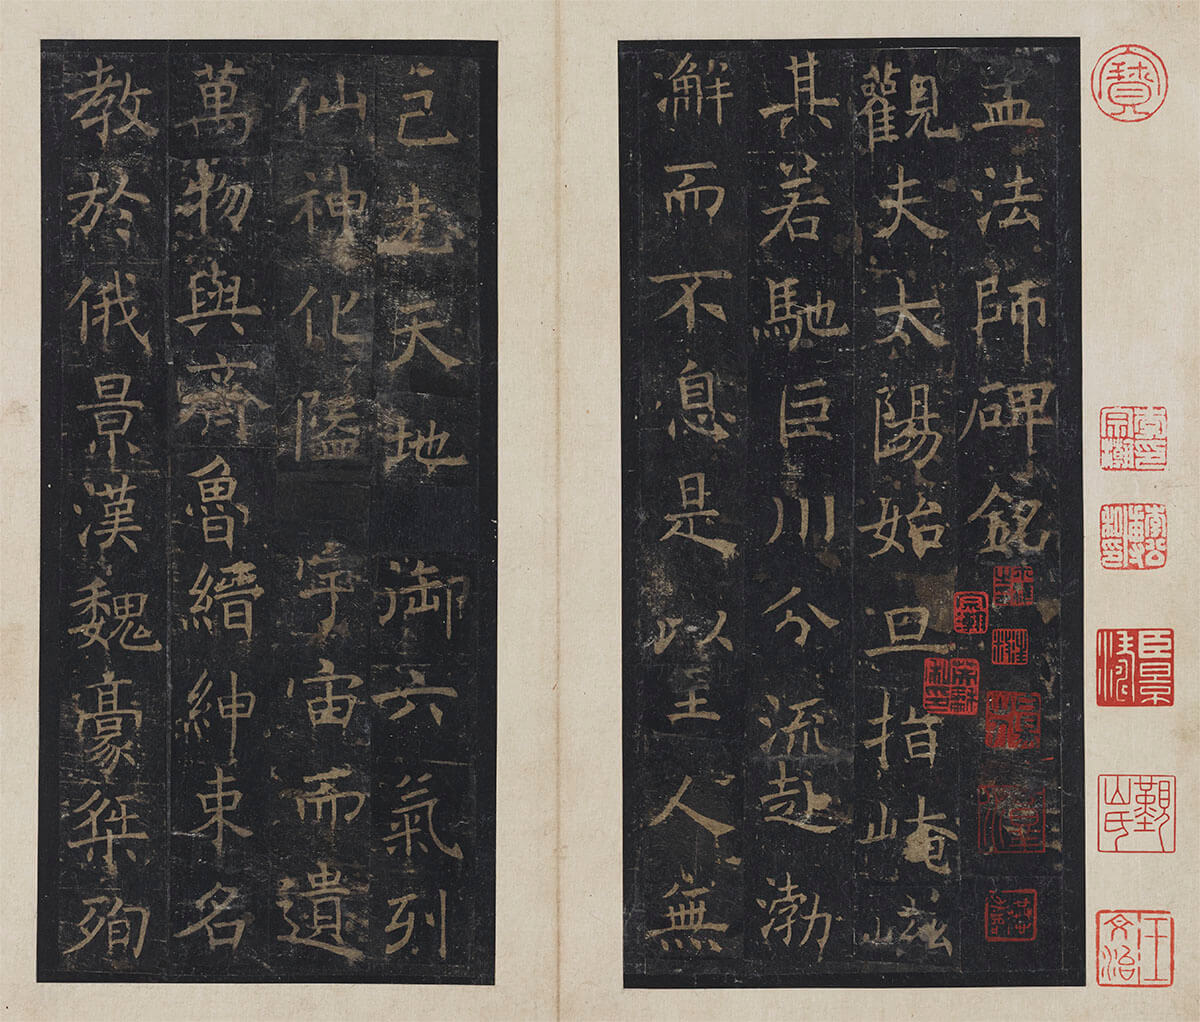 孟法師碑銘
觀夫太陽始旦指崦嵫
其若馳巨川分流赴渤
澥而不息是以至人無
己先天地御六氣列
仙神化隘宇宙而遺
萬物與齊魯縉紳束名
教於俄景漢魏豪桀殉
臣景濬
王文治